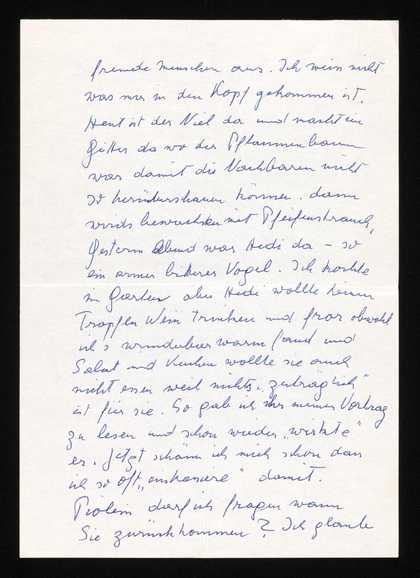 fremde Menschen aus. Ich weiss nicht
was mir in den Kopf gekommen ist.
Heut ist der Viel da und macht ein
Gitter da wo der Pflaumenbaum
war damit die Nachbarn nicht
so herüberschauen können. dann
wirds bewachsen mit Pfeifenstrauch,
Gestern Abend war Hedi da – so
ein armer bitterer Vogel. Ich kochte
im Garten aber Hedi wollte keinen
Tropfen Wein trinken und fror obwohl
ich's wunderbar warm fand und
Salat und Kuchen wollte sie auch
nicht essen weil nichts „zuträglich"
ist für sie. So gab ich ihr meinen Vortrag
zu lesen und schon wieder „wirkte"
er. Jetzt schäm ich mich schon dass
ich so oft „hausiere" damit.
darf ich fragen wann
Sie zurückkommen? Ich glaube